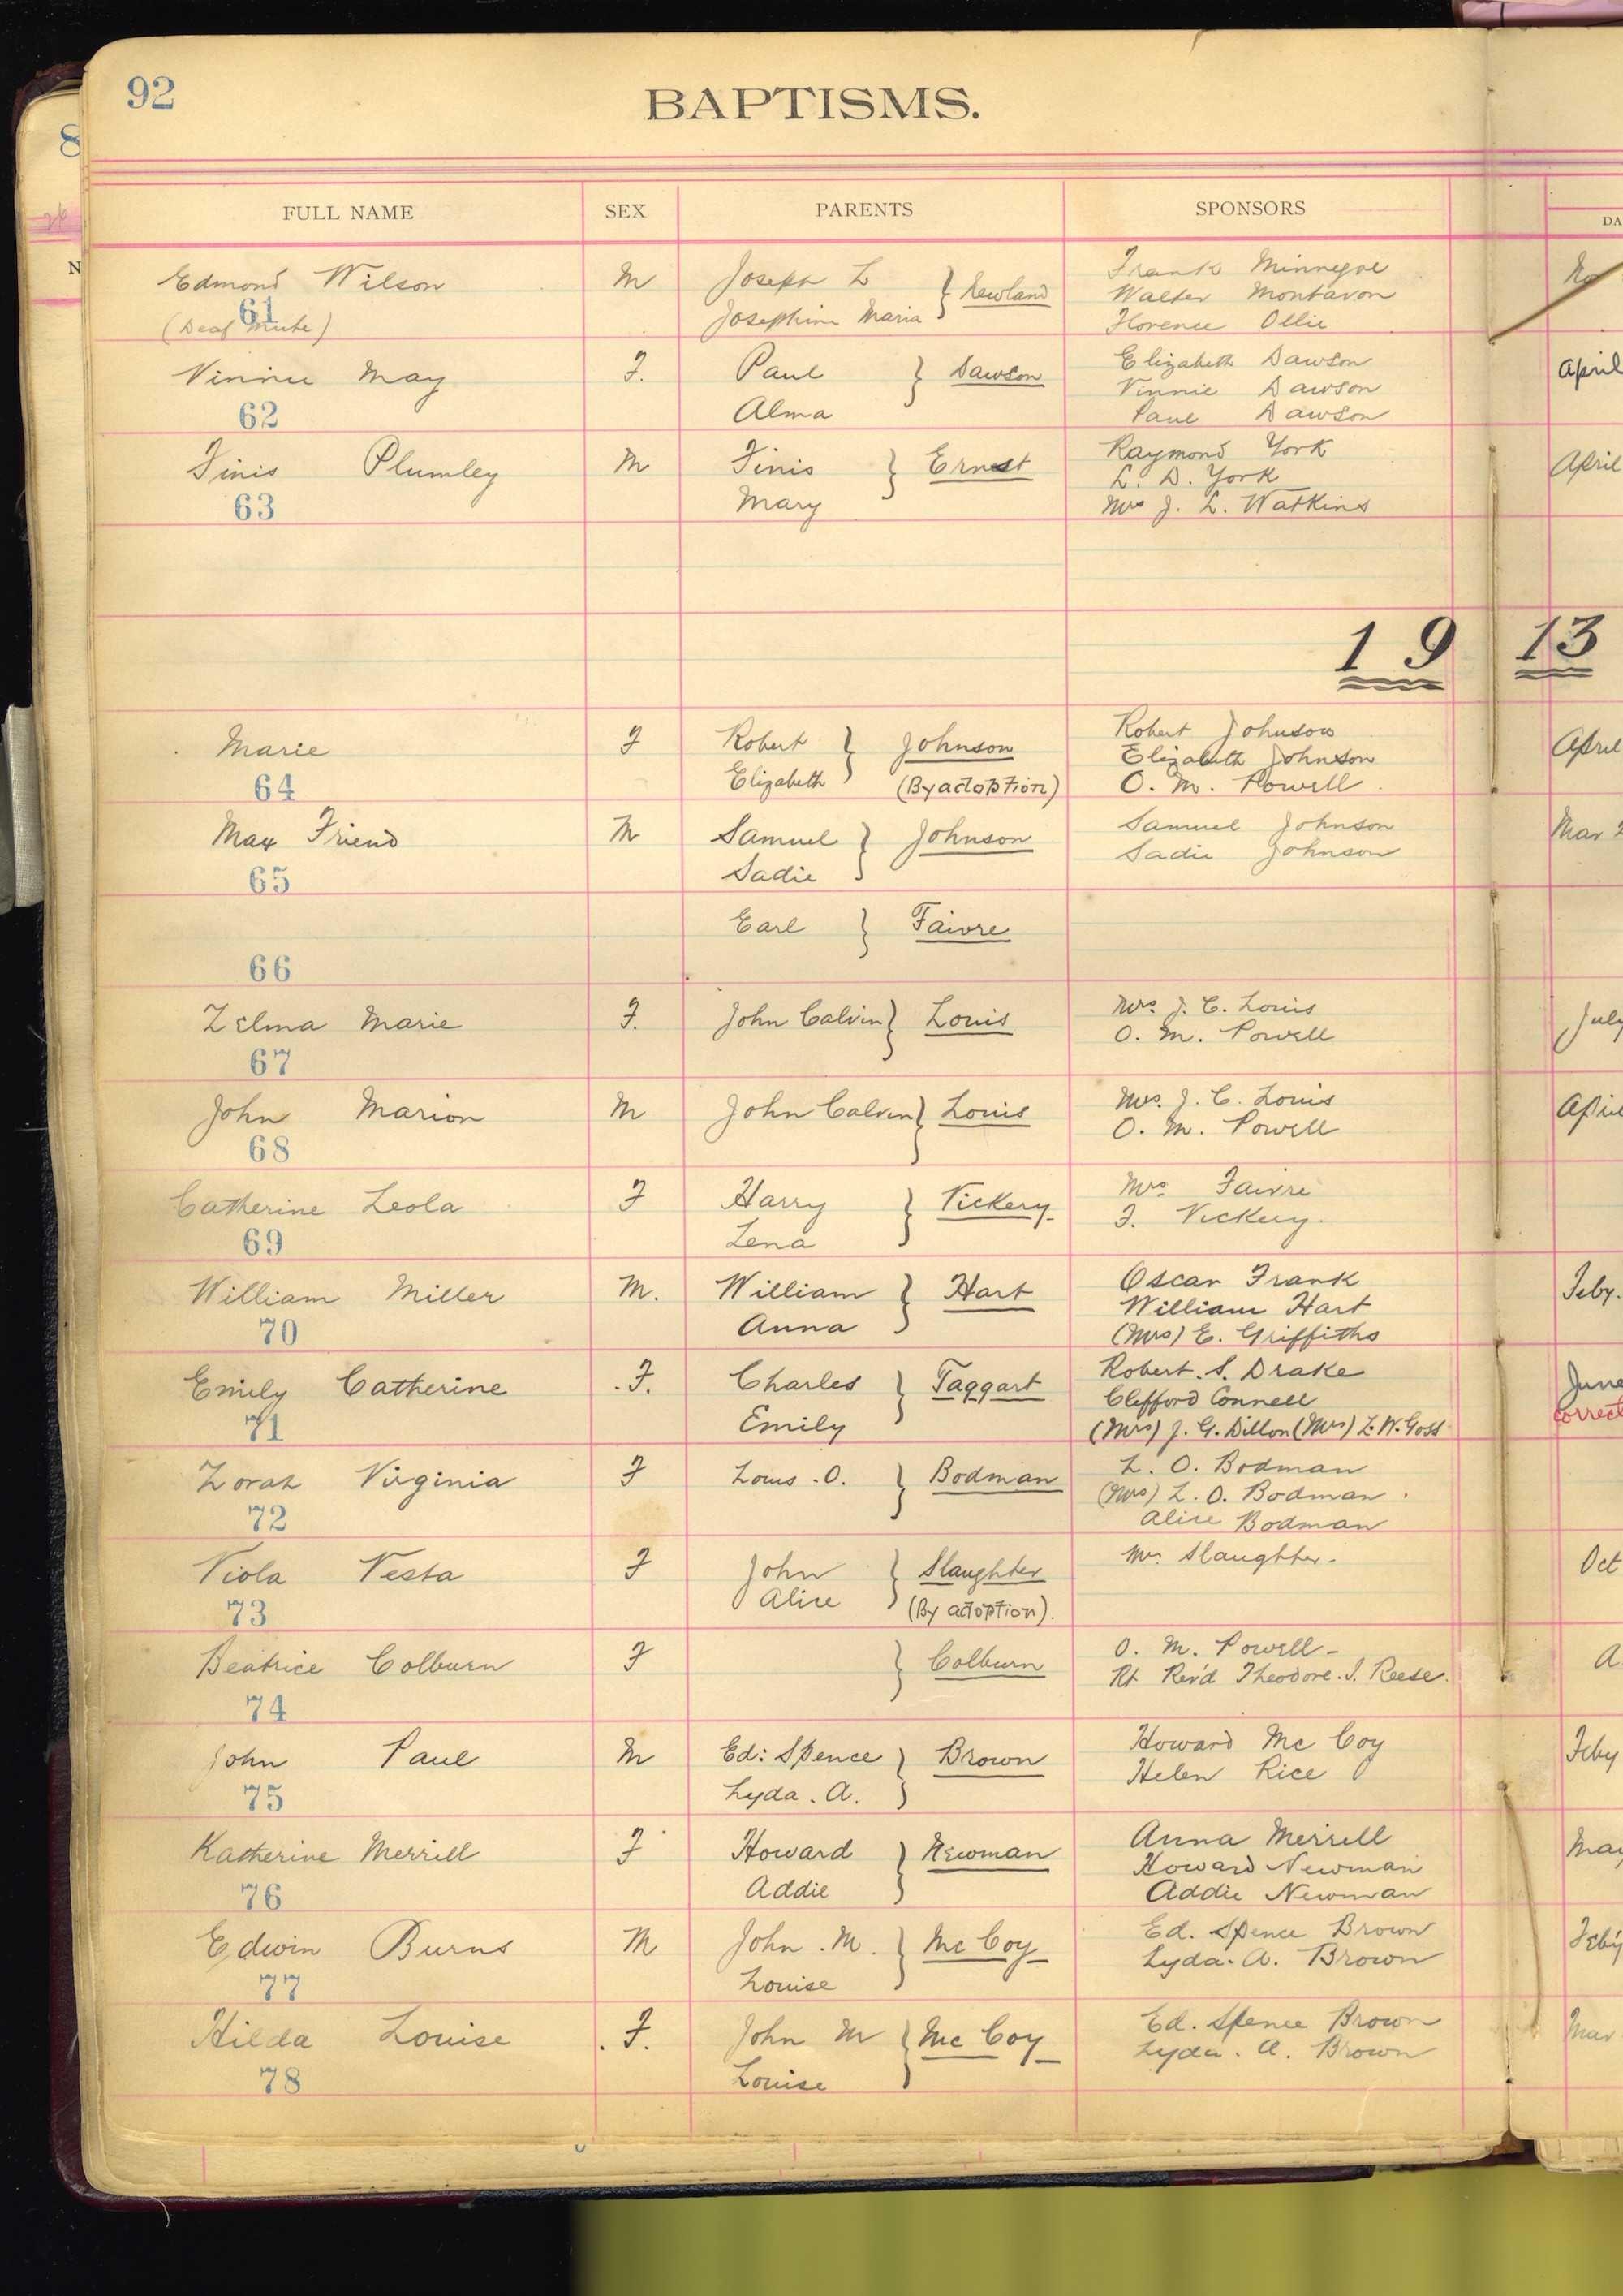 92
BAPTISMS.
FULL NAME SEX PARENTS SPONSORS
Edmond Wilson M Joseph L } Newland Frank Minnegoe
Walter Montavon
61 Josephine Maria
(Deaf Mute) Florence Ollie
Vinnie May F. Paul } Dawson Elizabeth Dawson April
Vinnie Dawson
62 Alma Paul Dawson
Finis Plumley M Finis } Ernest Raymond York April
L. D. York
63 Mary Mrs J. L. Watkins
1913
Marie F Robert } Johnson Robert Johnson April
Elizabeth Johnson
64 Elizabeth (By adoption) O. M. Powell
Max Friend M Samuel } Johnson Samuel Johnson Mar
Sadie Johnson
65 Sadie
Earl } Faivre
66
Zelma Marie F. John Calvin } Louis Mrs J. C. Louis July
O. M. Powell
67
John Marion M John Calvin } Louis Mrs. J. C. Louis April
O. M. Powell
68
Catherine Leola F Harry } Vickery Mrs Faivre
F. Vickery.
69 Lena
William Miller M. William } Hart Oscar Frank Feby.
William Hart
70 Anna (Mrs) E. Griffiths
Emily Catherine F. Charles } Taggart Robert. S. Drake June
Clifford Connell correct
71 Emily (Mrs) J. G. Dillon (Mrs) L. W. Goss
Zorah Virginia F Louis . O. } Bodman L. O. Bodman
(Mrs) L. O. Bodman
72 Alice Bodman
Viola Vesta F John } Slaughter Mrs. Slaughter - Oct
73 Alice (By adoption).
Beatrice Colburn F } Colburn O. M. Powell -
Rt Rev'd Theodore. I. Reese.
74
John Paul M Ed: Spence } Brown Howard Mc Coy Feby
Helen Rice
75 Lyda . A.
Katherine Merrill F Howard } Newman Anna Merrell May
Howard Newman
76 Addie Addie Newman
Edwin Burns M John . M. } Mc Coy Ed. Spence Brown Feby
Lyda. A. Brown
77 Louise
Hilda Louise F. John M } Mc Coy Ed. Spence Brown Mar
Lyda. A. Brown
78 Louise